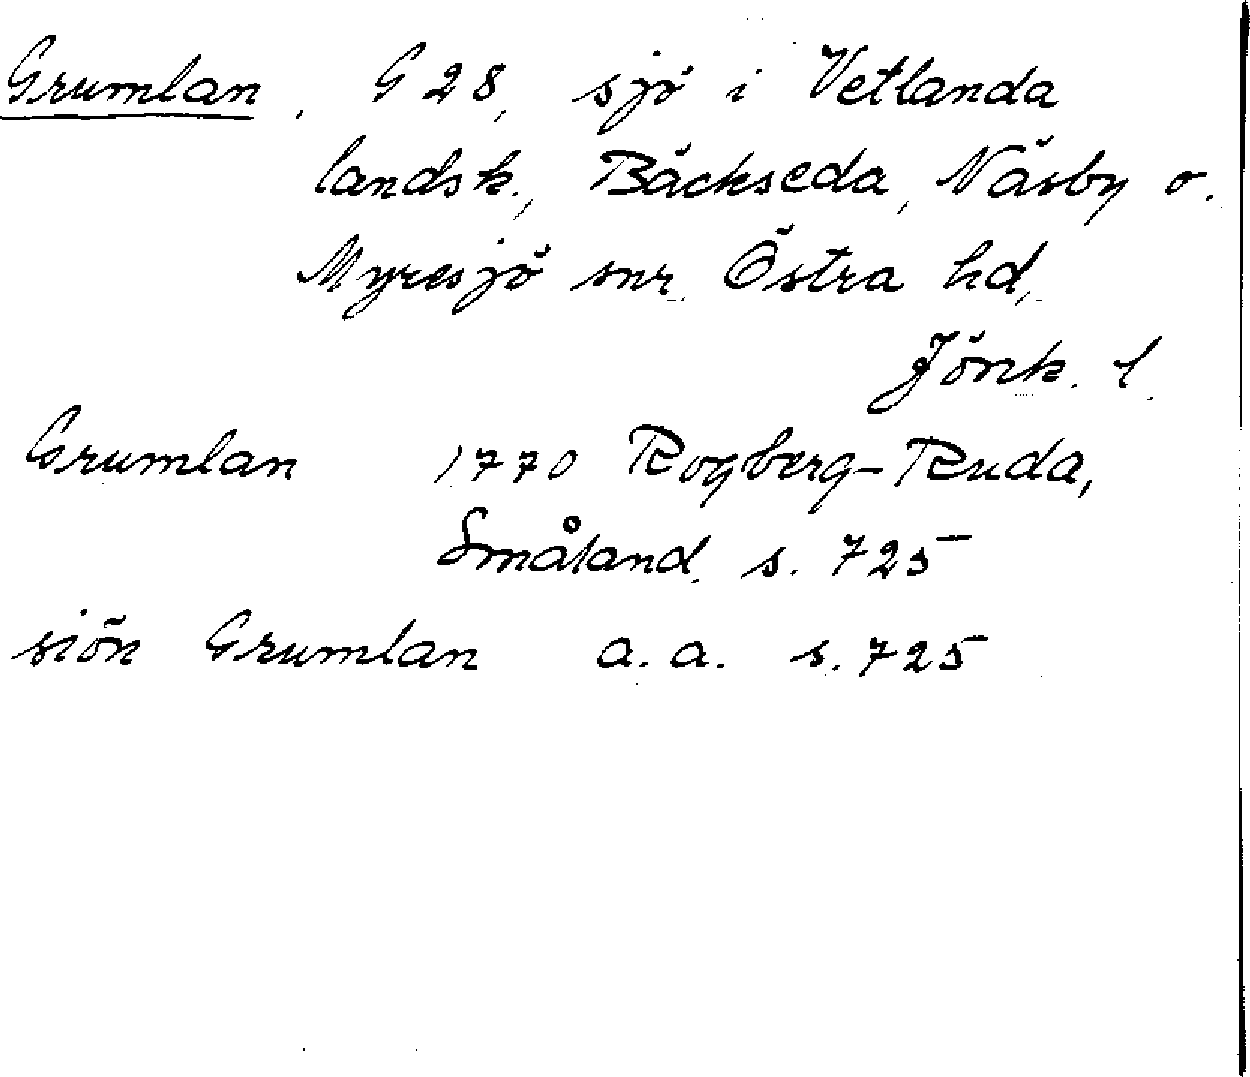 Grumlan, G 28, sjö i Vetlanda
landsk., Bäckseda, Näsby o.
Myresjö snr. Östra hd,
Jönk. l.
Grumlan 1770 Rogberg-Ruda,
Småland, s. 725
siön Grumlan a.a. s. 725